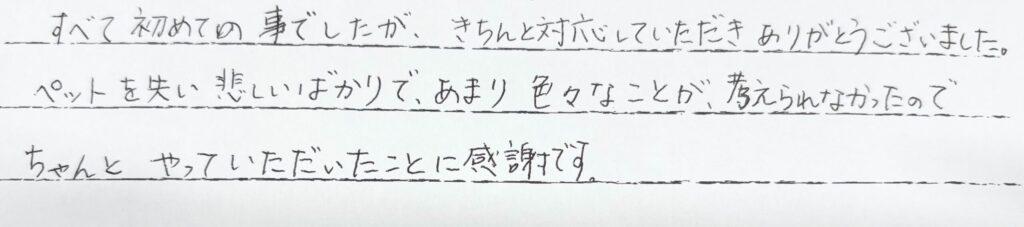 すべて初めての事でしたが、きちんと対応していただきありがとうございました。
ペットを失い悲しいばかりで、あまり色々なことが、考えられなかったので
ちゃんとやっていただいたことに感謝です。